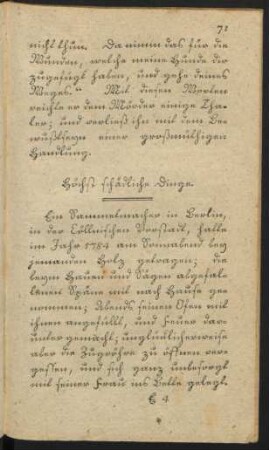 71
nicht thun. Da nimm das für die
Wunden, welche meine Hunde dir
zugefügt haben, und gehe deines
Weges." Mit diesen Worten
reichte er dem Mörder einige Tha-
ler; und verließ ihn mit dem Be-
wußtseyn einer großmüthigen
Handlung.
Höchst schädliche Dinge.
Ein Sammetmacher in Berlin,
in der Cöllnischen Vorstadt, hatte
im Jahr 1784 am Sonnabend bey
jemanden Holz getragen; die
beym Hauen und Sägen abgefal-
lenen Späne mit nach Hause ge-
nommen; Abends seinen Ofen mit
ihnen angefüllt, und Feuer dar-
unter gemacht; unglücklicherweise
aber die Zugröhre zu öffnen ver-
gessen, und sich ganz unbesorgt
mit seiner Frau ins Bette gelegt.
E 4